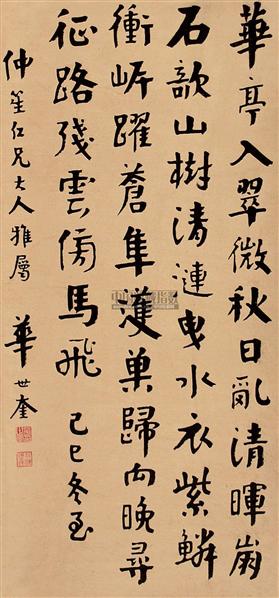 華亭入翠微秋日亂清暉崩
石欹山樹清漣曳水衣紫鱗
衝岸躍蒼隼護巢歸向晚尋
征路殘雲傍馬飛 己巳冬至
仲笙仁兄大人雅屬 華世奎